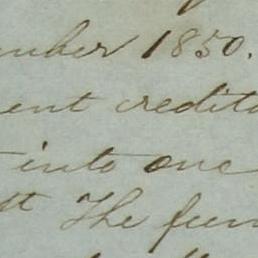 mber 1850.
ent credito
into one
tt The fun